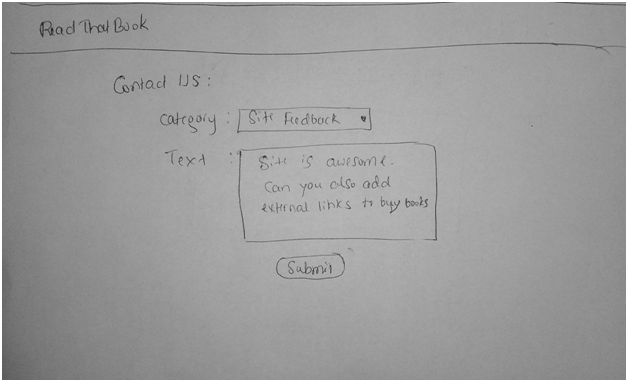 Read That Book
Contact US :
Category : Site Feedback
Text : Site is awesome.
Can you also add
external links to buy books
Submit